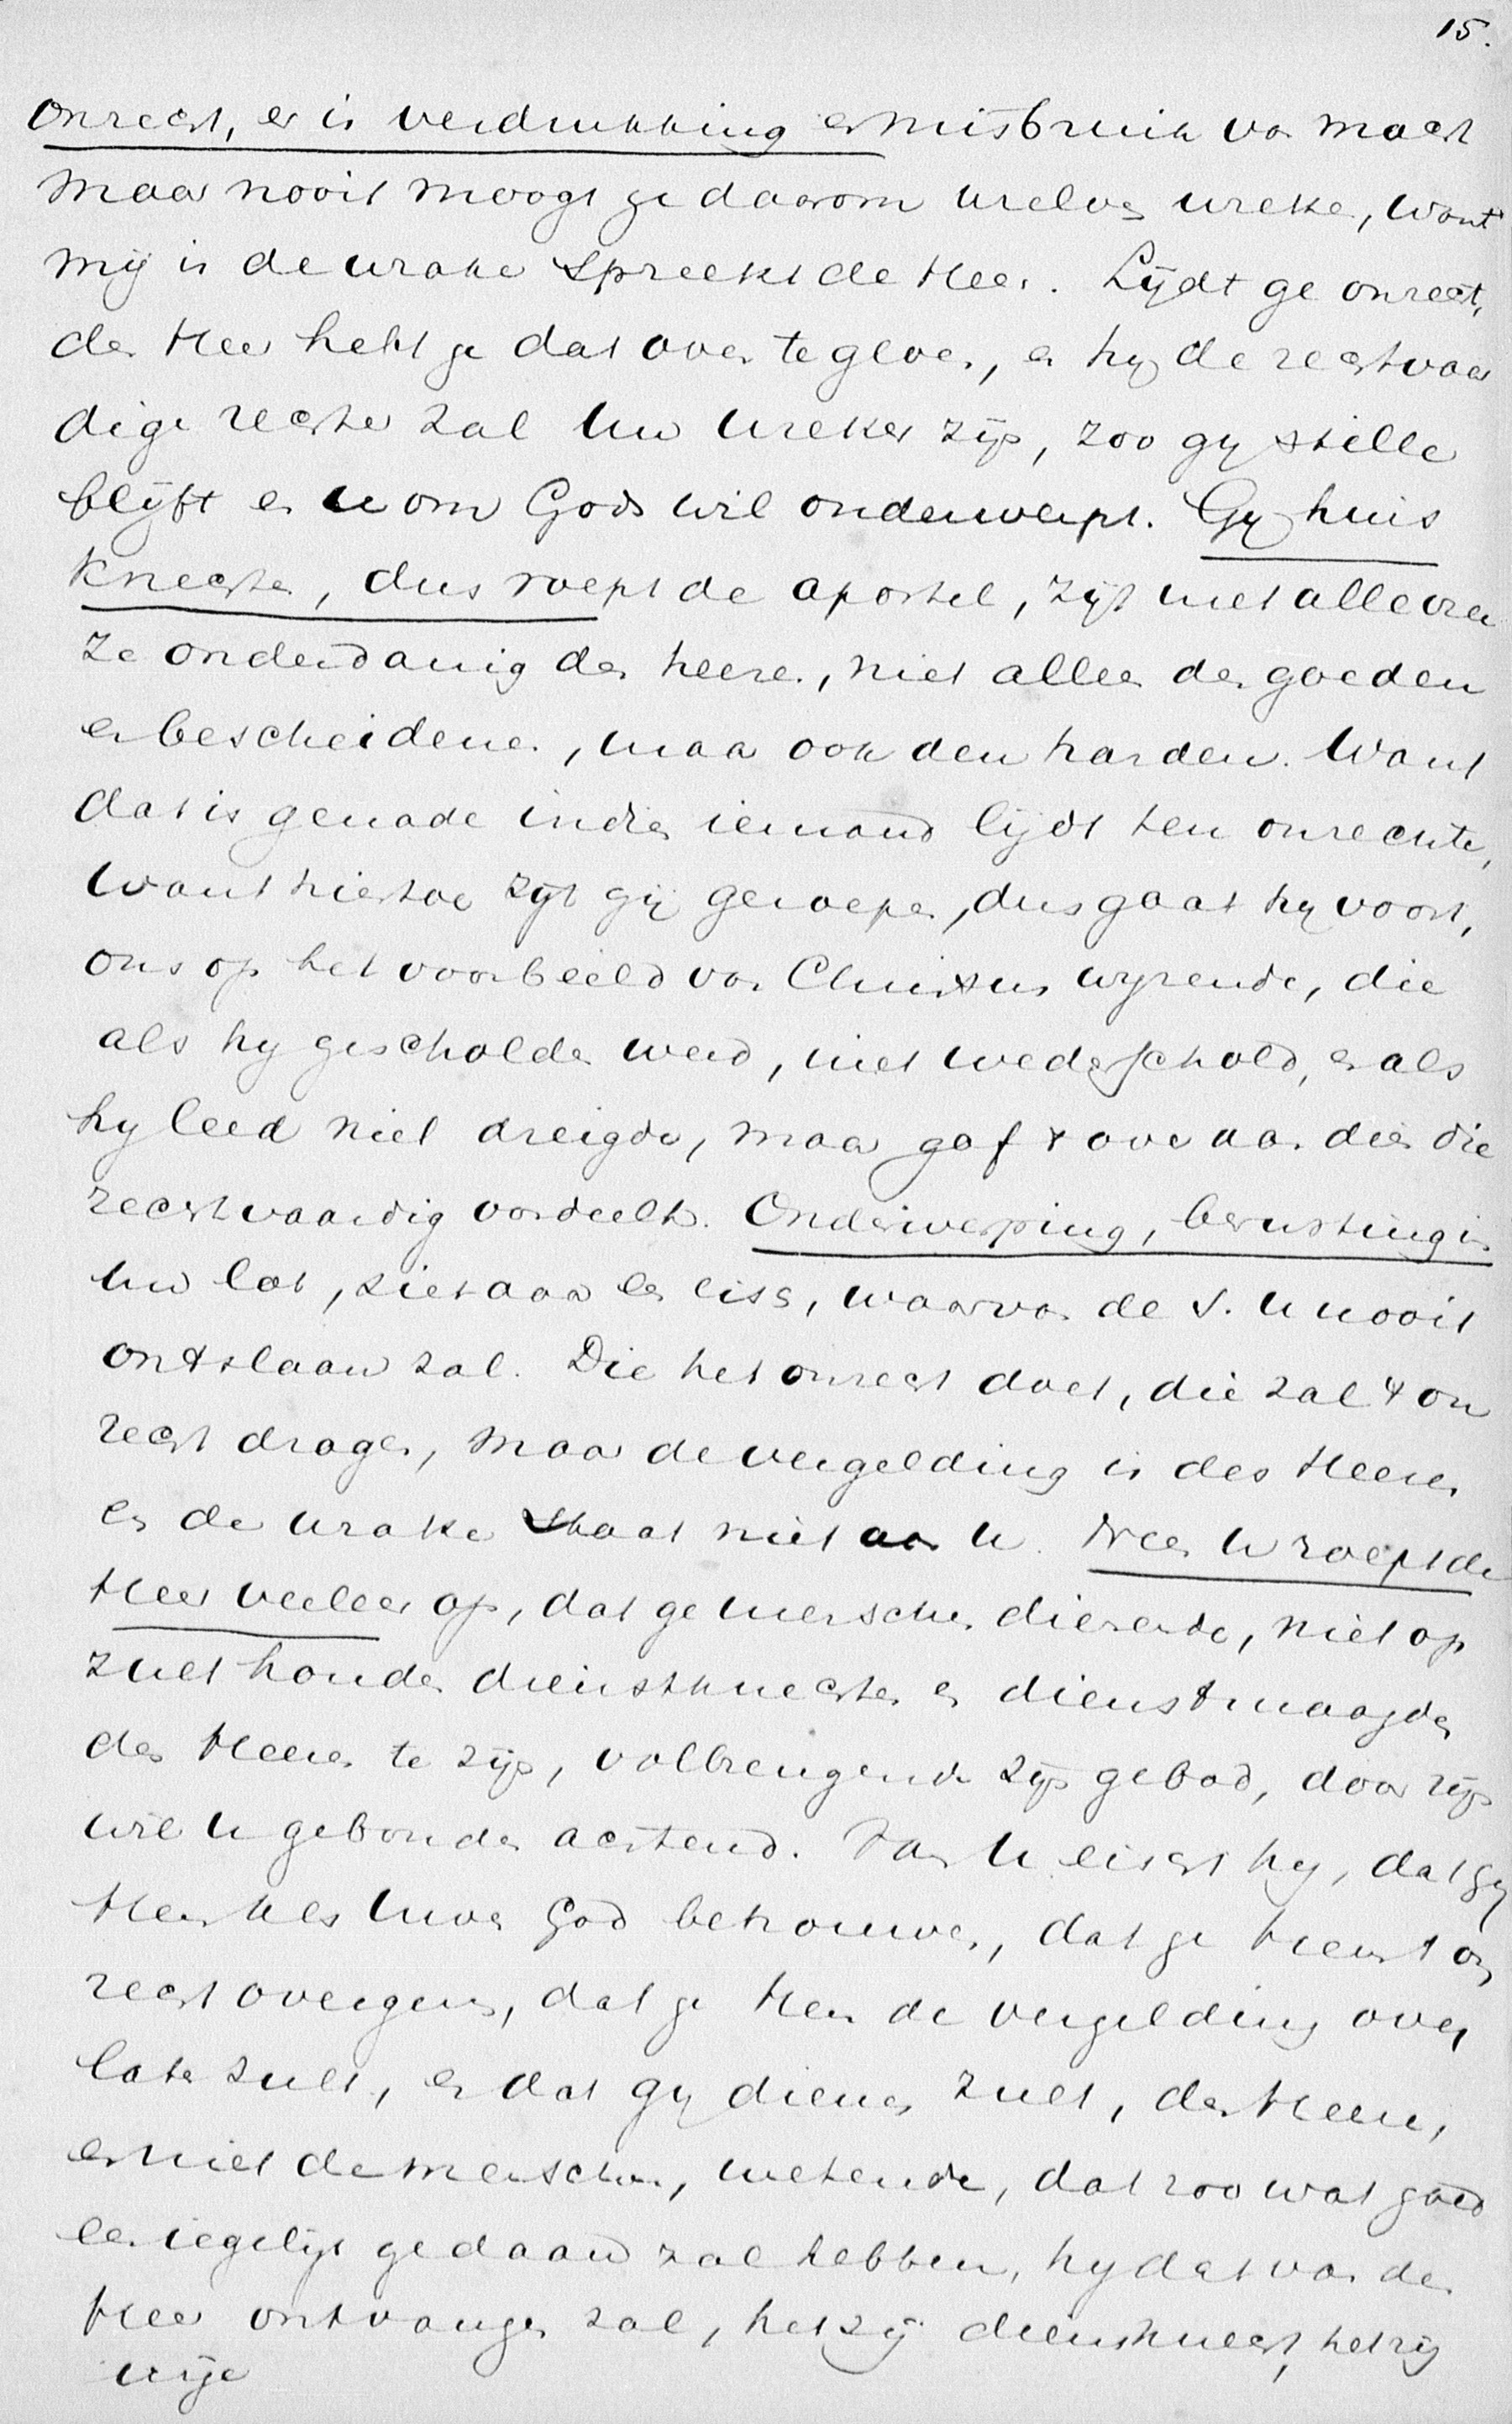 15.
onrecht, er is verdrukking en misbruik van macht
maar nooit moogt ge daarom uzelven wreken, want
mij is de wrake spreekt de Heer. Lijdt ge onrecht,
den Heer hebt ge dat over te geven, en hij de rechtvaar
dige rechter zal Uw wreker zijn, zoo gij stille
blijft en u om Gods wil onderwerpt. Gij huis
knechten, dus roept de apostel, zijt met alle vree
ze onderdanig den heeren, niet alleen den goeden
en bescheidenen, maar ook den harden. Want
dat is genade indien iemand lijdt ten onrechte,
want hiertoe zijt gij geroepen, dus gaat hij voort,
ons op het voorbeeld van Christus wijzende, die
als hij gescholden werd, niet wederschold, en als
hij leed niet dreigde, maar gaf t over aan dien die
rechtvaardig oordeelt. Onderwerping, berusting in
Uw lot, ziet daar een eisch, waarvan de S. U nooit
ontslaan zal. Die het onrecht doet, die zal t on
recht dragen, maar de vergelding is des Heeren
en de wrake staat niet aan U. Neen U roept de
Heer veeleer op, dat ge menschen dienende, niet op
zult houden dienstknechten en dienstmaagden
des Heeren te zijn, volbrengende zijn gebod, door zijn
wil U gebonden achtend. Van U eischt hij, dat gij
Hem als Uwen God betrouwen, dat ge Hem t on
recht overgeven, dat ge Hem de vergelding over
laten zult, en dat gij dienen zult, den Heere,
en niet de menschen, wetende, dat zoo wat goed
een iegelijk gedaan zal hebben, hij dat van den
Heer ontvangen zal, hetzij dienstknecht, hetzij
vrije